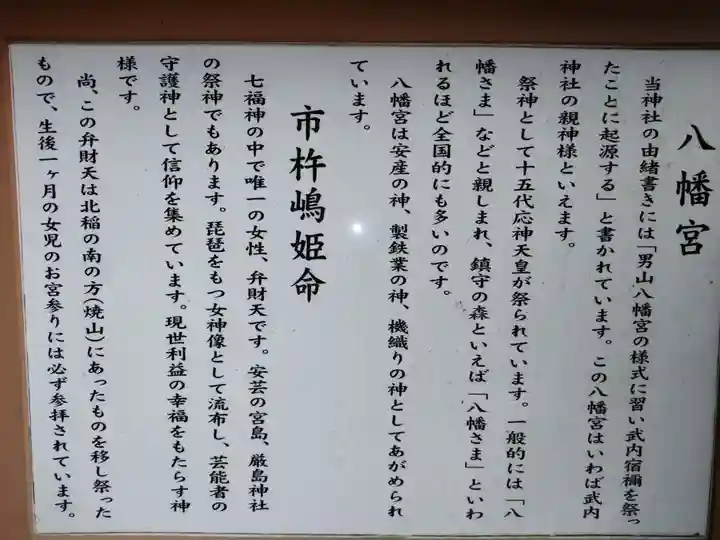 八幡宮
当神社の由緒書きには「男山八幡宮の様式に習い武内宿禰を祭っ
たことに起源する」と書かれています。この八幡宮はいわば武内
神社の親神様といえます。
祭神として十五代応神天皇が祭られています。一般的には「八
幡さま」などと親しまれ、鎮守の森といえば「八幡さま」といわ
れるほど全国的にも多いのです。
八幡宮は安産の神、製鉄業の神、機織りの神としてあがめられ
ています。
市杵嶋姫命
七福神の中で唯一の女性、弁財天です。安芸の宮島、厳島神社
の祭神でもあります。琵琶をもつ女神像として流布し、芸能者の
守護神として信仰を集めています。現世利益の幸福をもたらす神
様です。
尚、この弁財天は北稲の南の方(焼山)にあったものを移し祭った
もので、生後一ヶ月の女児のお宮参りには必ず参拝されています。